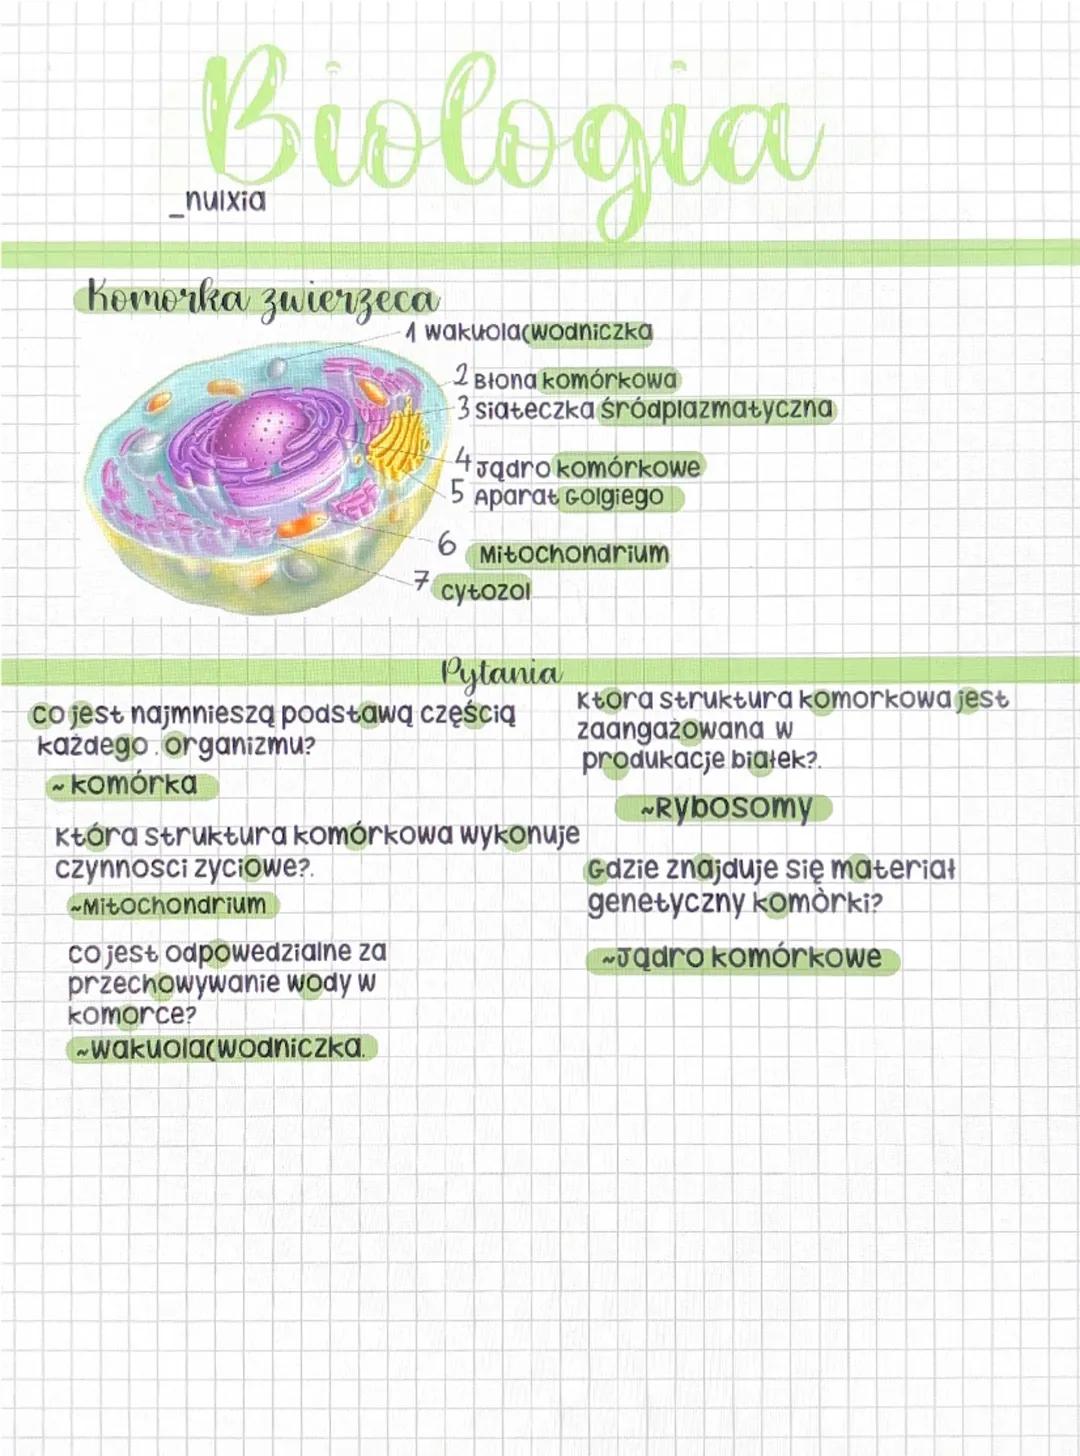 Biologia
_nulxia
Komorka zwierzeca
1 wakuola(wodniczka
2 Błona komórkowa
3 siateczka śródplazmatyczna
4 Jądro komórkowe
5 Aparat Golgiego
6 Mitochondrium
7 cytozol
Pytania
co jest najmnieszą podstawą częścią
każdego . organizmu?
~ komórka
Która struktura komórkowa wykonuje
czynnosci zyciowe?.
~Mitochondrium
co jest odpowedzialne za
przechowywanie wody w
komorce?
~wakuola(wodniczka.
Ktora struktura komorkowa jest
zaangażowana w
produkacje białek?.
~Rybosomy
Gdzie znajduje się materiał
genetyczny komòrki?
~Jądro komórkowe